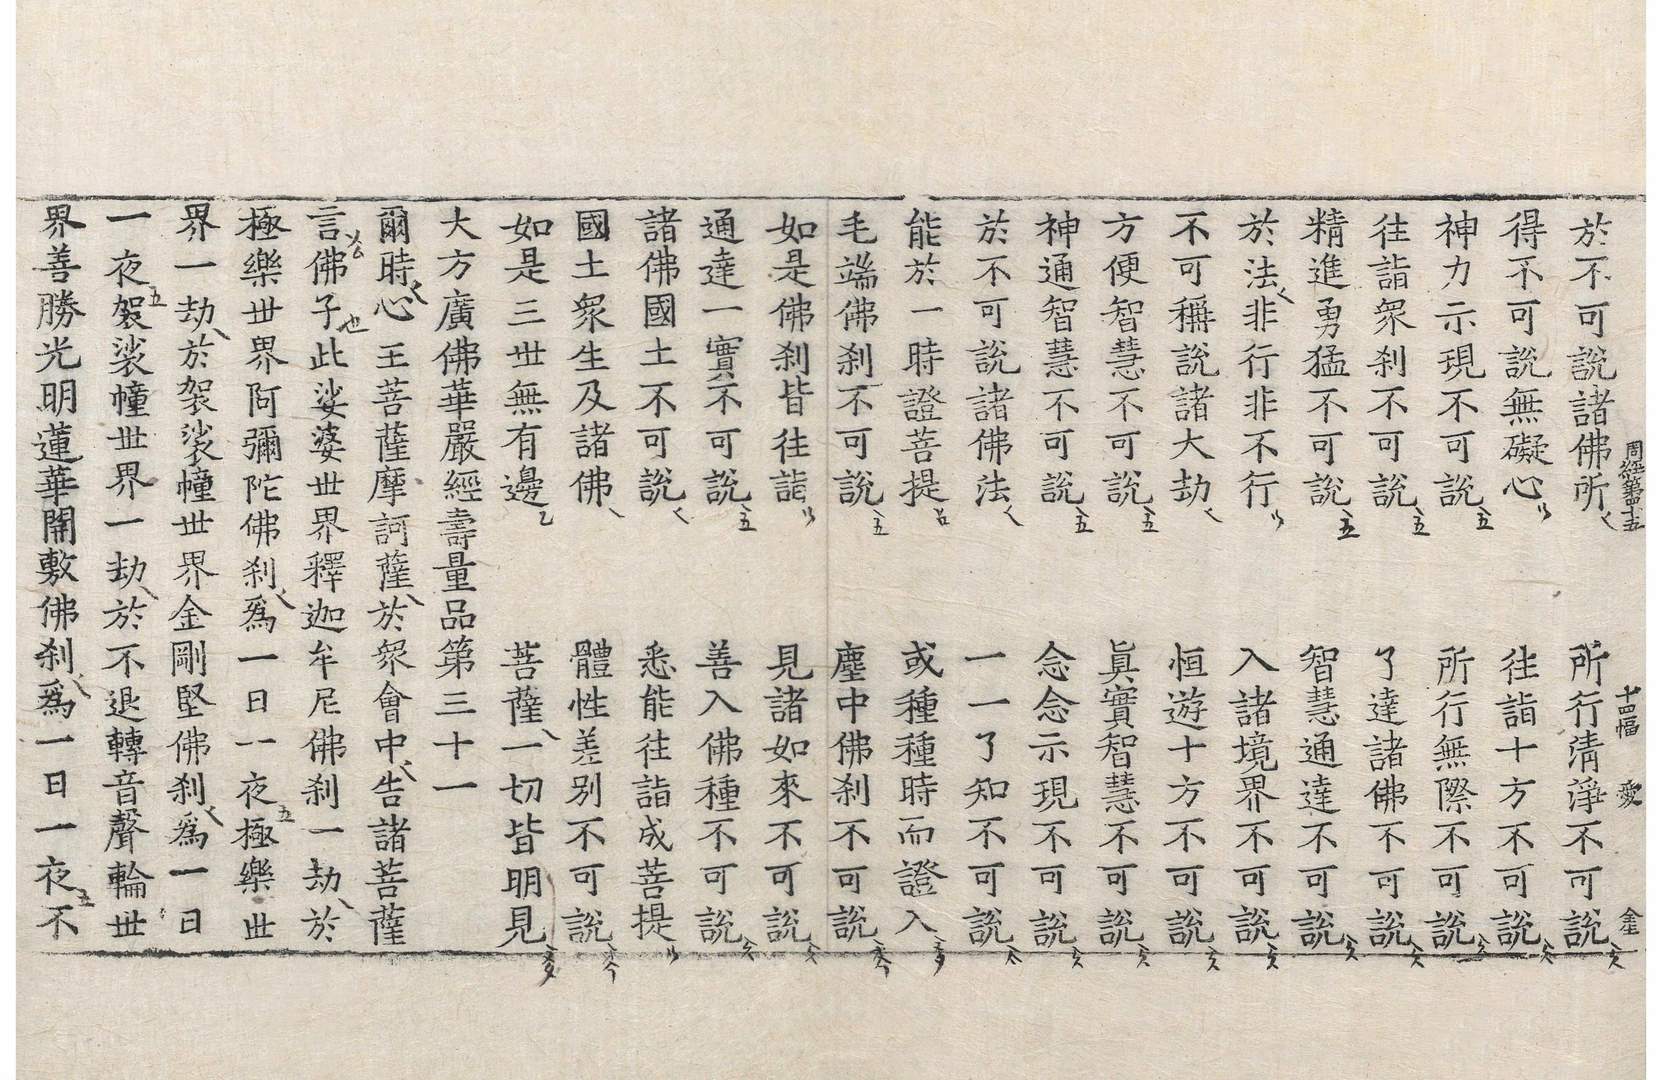 周經第四十五 十四幅 愛 金
於不可說諸佛所 所行清淨不可說
得不可說無礙心 往詣十方不可說
神力示現不可說 所行無際不可說
往詣衆刹不可說 了達諸佛不可說
精進勇猛不可說 智慧通達不可說
於法非行非不行 入諸境界不可說
不可稱說諸大劫 恒遊十方不可說
方便智慧不可說 眞實智慧不可說
神通智慧不可說 念念示現不可說
於不可說諸佛法 一一了知不可說
能於一時證菩提 或種種時而證入
毛端佛刹不可說 塵中佛刹不可說
如是佛刹皆往詣 見諸如來不可說
通達一實不可說 善入佛種不可說
諸佛國土不可說 悉能往詣成菩提
國土衆生及諸佛 體性差別不可說
如是三世無有邊 菩薩一切皆明見
大方廣佛華嚴經壽量品第三十一
爾時心王菩薩摩訶薩於衆會中告諸菩薩
言佛子此娑婆世界釋迦牟尼佛刹一劫於
極樂世界阿彌陀佛刹爲一日一夜極樂世
界一劫於袈裟幢世界金剛堅佛刹爲一日
一夜袈裟幢世界一劫於不退轉音聲輪世
界善勝光明蓮華開敷佛刹爲一日一夜不